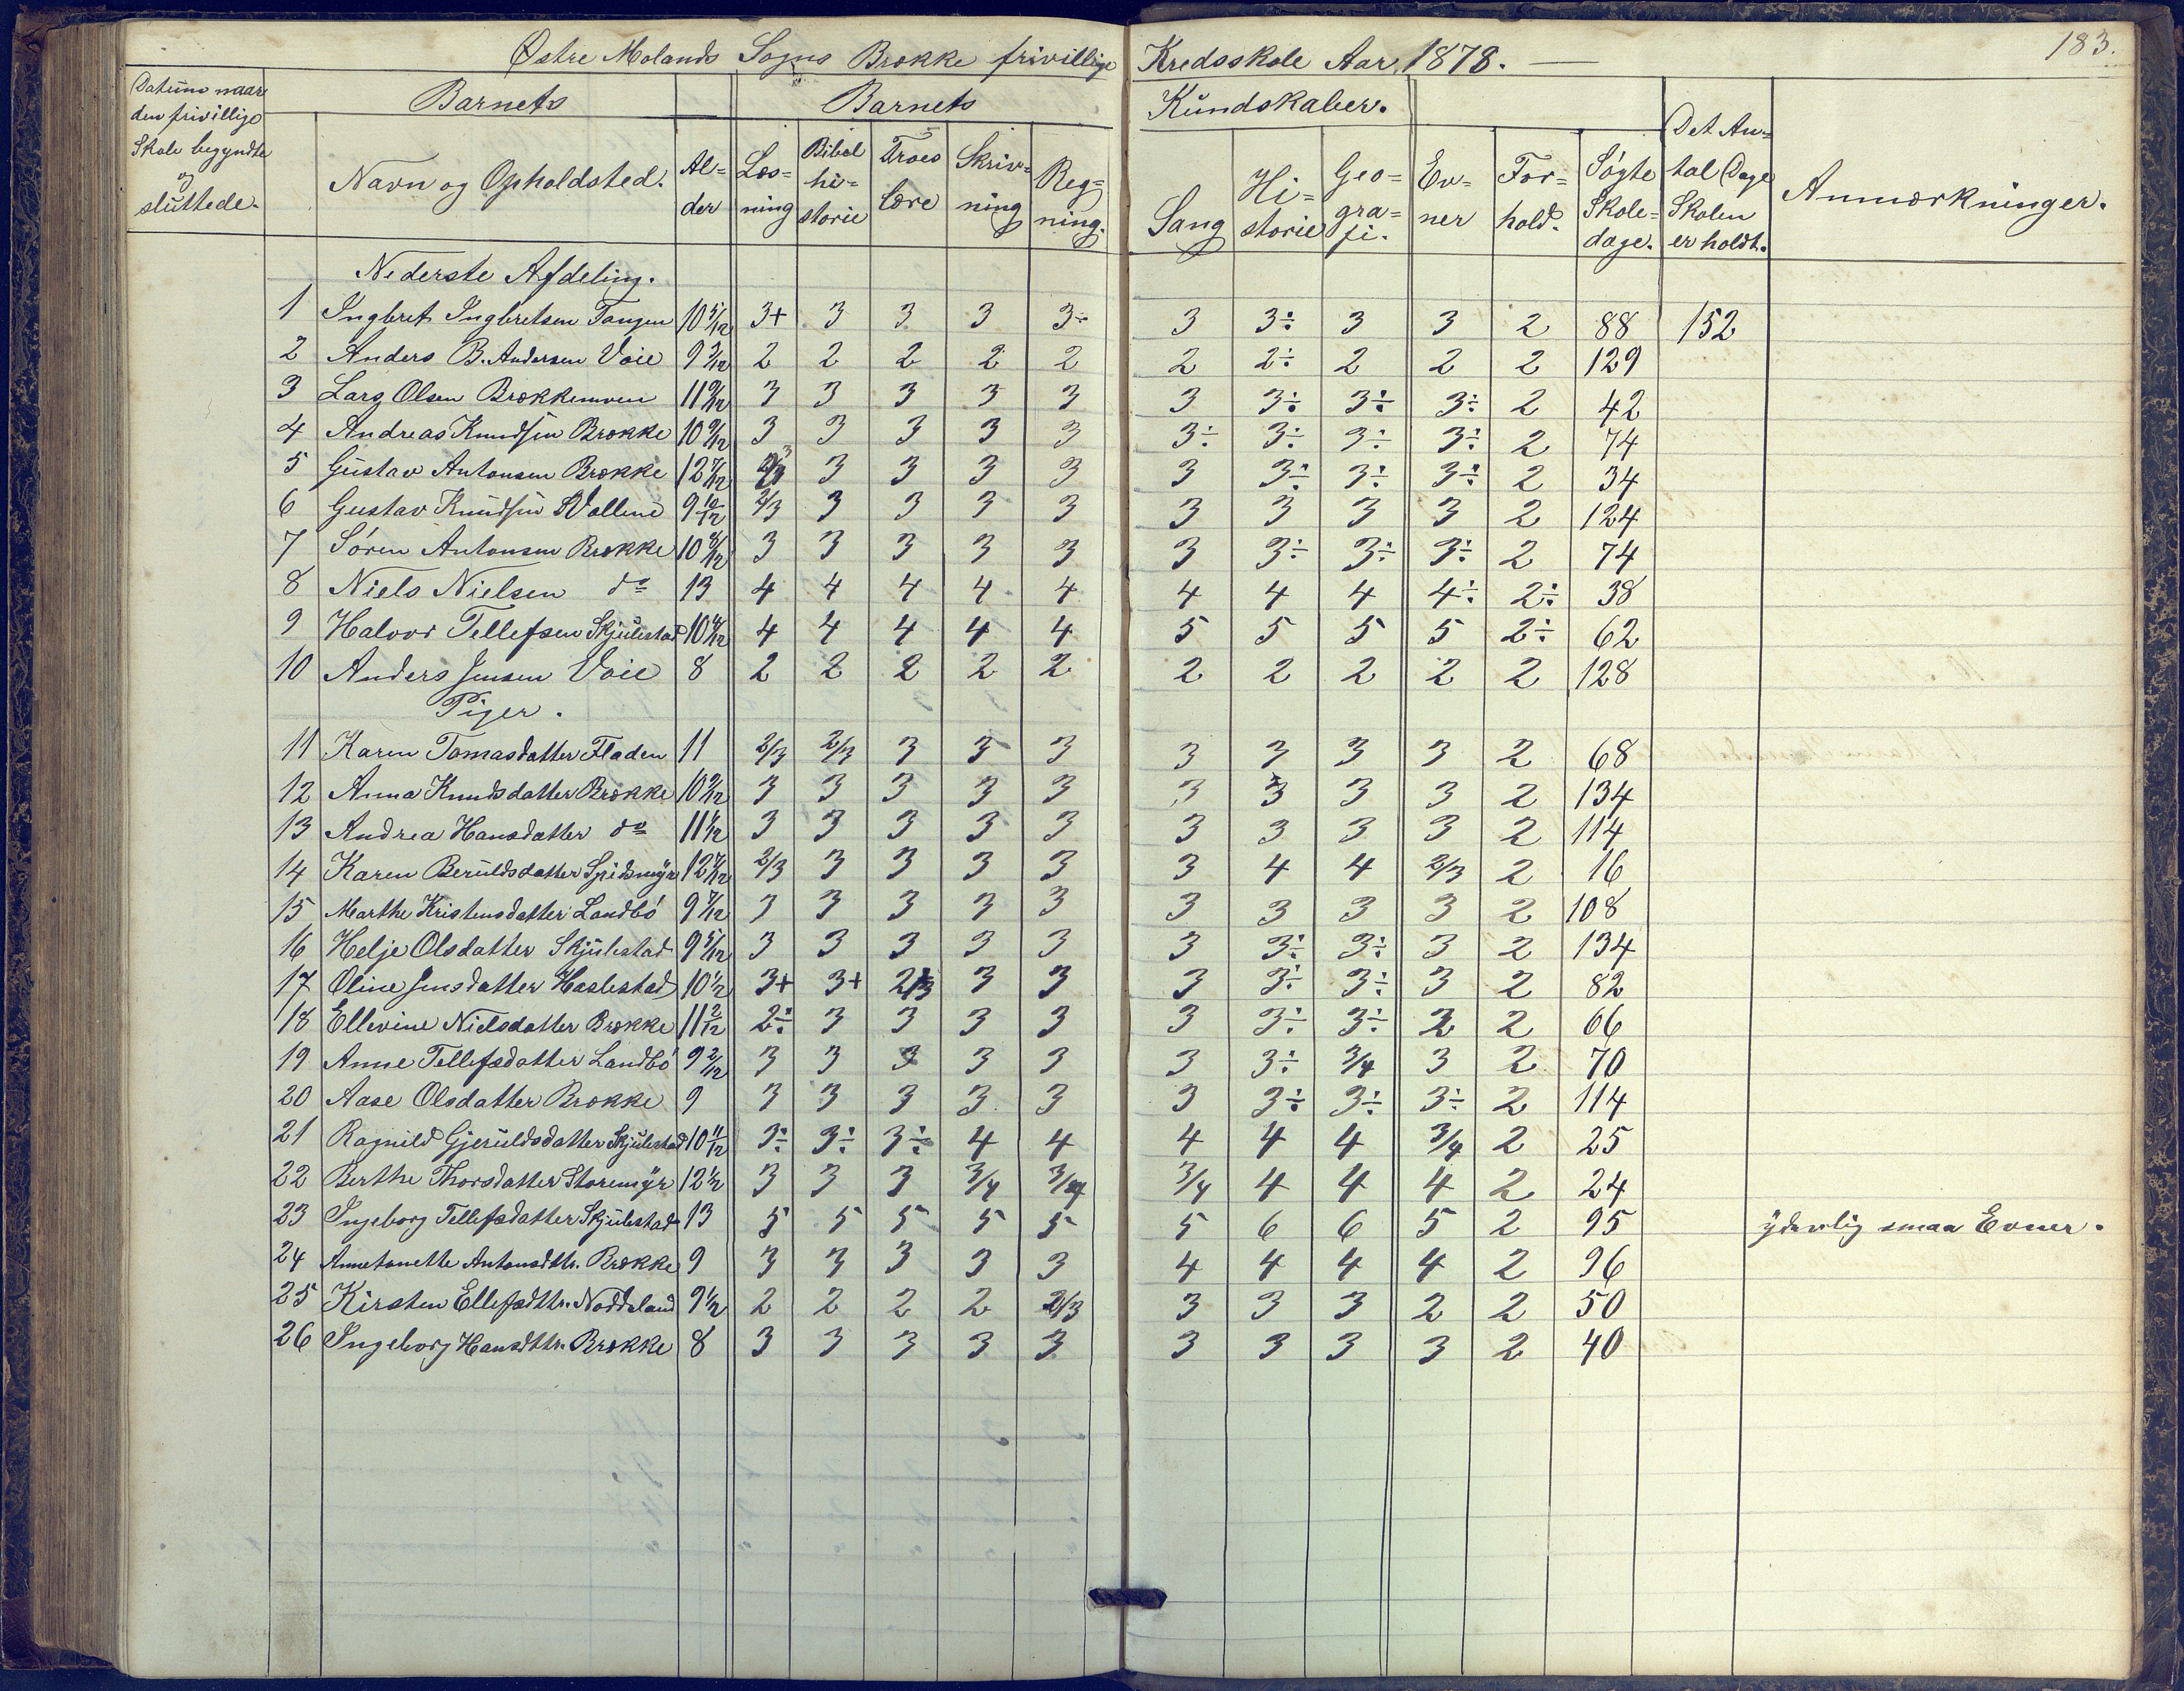 183.
Østre Molands Sogns Brække frivillige Kredsskole Aar 1878.
Datum naar den frivillige Skole begyndte og sluttede.
Barnets
Barnets Kundskaber.
Navn og Opholdsted. Al=der Læs=ning Bibel hi=storie Troes lære Skriv=ning Reg=ning. Sang Hi=storie Geo=gra=fi. Ev=ner For=hold. Søgte Skole=dage. Det An=tal Dage Skolen er holdt. Anmærkninger.
Nederste Afdeling.
1 Ingbret Ingbretsen Tangen 10 5/12 3+ 3 3 3 3÷ 3 3÷ 3 3 2 88 152
2 Anders B. Andersen Voie 9 3/12 2 2 2 2 2 2 2÷ 2 2 2 129
3 Lars Olsen Brækkemoen 11 9/12 3 3 3 3 3 3 3÷ 3÷ 3÷ 2 42
4 Andreas Knudsen Brække 10 9/12 3 3 3 3 3 3÷ 3÷ 3÷ 3÷ 2 74
5 Gustav Antonsen Brække 12 7/12 2/3 3 3 3 3 3 3÷ 3÷ 3÷ 2 34
6 Gustav Knudsen Vollene 9 10/12 2/3 3 3 3 3 3 3 3 3 2 124
7 Søren Antonsen Brække 10 8/12 3 3 3 3 3 3 3÷ 3÷ 3÷ 2 74
8 Niels Nielsen do 13 4 4 4 4 4 4 4 4 4÷ 2÷ 38
9 Halvor Tellefsen Skjulestad 10 4/12 4 4 4 4 4 5 5 5 5 2÷ 62
10 Anders Jensen Voie 8 2 2 2 2 2 2 2 2 2 2 128
Piger.
11 Karen Tomasdatter Fladen 11 2/3 2/3 3 3 3 3 3 3 3 2 68
12 Anna Knudsdatter Brække 10 9/12 3 3 3 3 3 3 3 3 3 2 134
13 Andrea Hansdatter do 11 1/2 3 3 3 3 3 3 3 3 3 2 114
14 Karen Beruldsdatter Spidsmyr 12 7/12 2/3 3 3 3 3 3 4 4 2/3 2 16
15 Marthe Kristensdatter Landbö 9 7/12 3 3 3 3 3 3 3 3 3 2 108
16 Helje Olsdatter Skjulestad 9 5/12 3 3 3 3 3 3 3÷ 3÷ 3 2 134
17 Oline Jensdatter Haslestad 10 1/2 3+ 3+ 2/3 3 3 3 3÷ 3÷ 3 2 82
18 Ellevine Nielsdatter Brække 11 2/12 2÷ 3 3 3 3 3 3÷ 3÷ 2 66
19 Anne Tellefsdatter Landbö 9 2/12 3 3 3 3 3 3 3÷ 3/4 3 2 70
20 Aase Olsdatter Brække 9 3 3 3 3 3 3 3÷ 3÷ 3÷ 2 114
21 Ragnild Gjeruldsdatter Skjulestad 10 11/12 3÷ 3÷ 3÷ 4 4 4 4 4 3/4 2 25
22 Berthe Thorsdatter Storemyr 12 1/2 3 3 3 3/4 3/4 3/4 4 4 4 2 24
23 Ingeborg Tellefsdatter Skjulestad 13 5 5 5 5 5 5 6 6 5 2 95 yderlig smaa Evner.
24 Annetonette Antonsdttr. Brække 9 3 3 3 3 3 4 4 4 4 2 96
25 Kirsten Ellefsdttr. Noddeland 9 1/2 2 2 2 2 2/3 3 3 3 2 2 50
26 Ingeborg Hansdttr. Brække 8 3 3 3 3 3 3 3 3 3 2 40